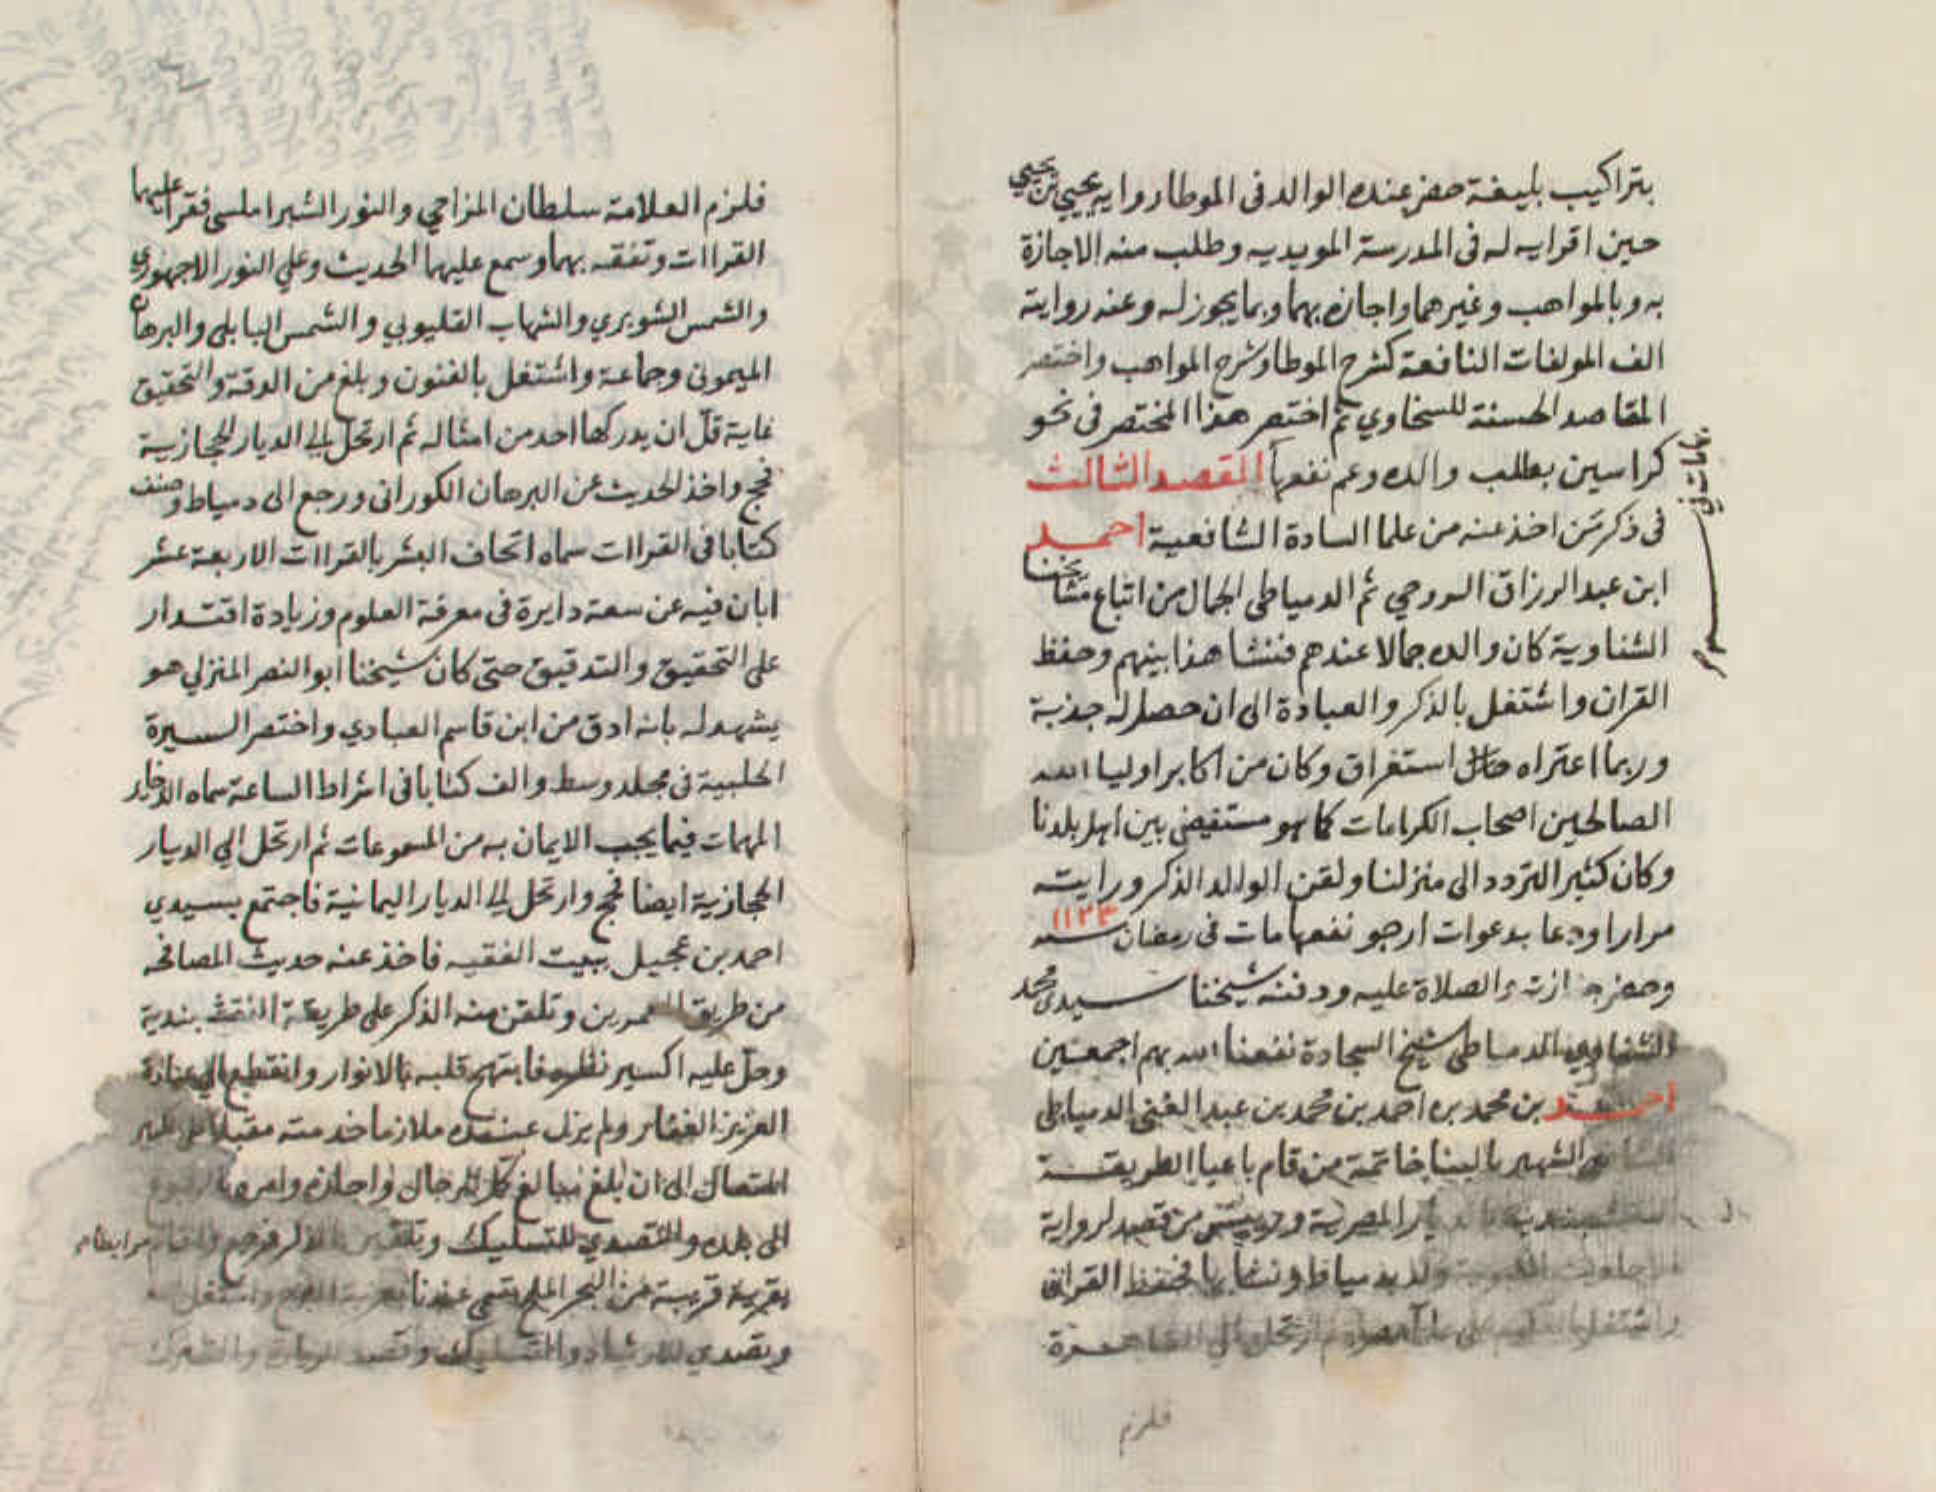 بتراكيب بليغة حضر عنده الوالد في الموطا رواية يحيي بن يحيي
حين اقرايه له في المدرسة المويديه وطلب منه الاجازة
به وبالمواهب وغيرهما واجازه بهما وبما يجوز له وعنه روايته
الف المولفات النافعة كشرح الموطا وشرح المواهب واختصر
المقاصد الحسنة للسخاوي ثم اختصر هذا المختصر في نحو
كراسين بطلب والده وعم نفعها المقصد الثالث
في ذكر من اخذ عنه من علما السادة الشافعية احمد
ابن عبد الرزاق الروحي ثم الدمياطي الجمال من اتباع مشايخنا
الشناوية كان والده جمالا عندهم فنشا هذا بينهم وحفظ
القران واشتغل بالذكر والعبادة الى ان حصل له جذبة
وربما اعتراه حال استغراق وكان من اكابر اوليا الله
الصالحين اصحاب الكرامات كما هو مستفيض بين اهل بلدنا
وكان كثير التردد الى منزلنا ولقن الوالد الذكر ورايته
مرارا ودعا بدعوات ارجو نفعها مات في رمضان سنه ١١٢٣
وحضر جنازته والصلاة عليه ودفنه شيخنا سيدي محمد
الشناوي الدمياطي شيخ السجادة نفعنا الله بهم اجمعين
احمد بن محمد بن احمد بن محمد بن عبد الغني الدمياطي
الشافعي الشهير بالبنا خاتمة من قام باعبا الطريقة
النقشبندية بالديار المصرية ورييس من قصد لرواية
الاحاديث النبوية ولد بدمياط ونشا بها فحفظ القران
واشتغل بالعلم على علما عصره ثم ارتحل الي القاهرة
فلزم
فلزم العلامة سلطان المزاحي والنور الشبراملسي فقرا عليهما
القراات وتفقه بهما وسمع عليهما الحديث وعلي النور الاجهوري
والشمس الشوبري والشهاب القليوبي والشمس البابلي والبرهان
الميموني وجماعة واشتغل بالفنون وبلغ من الدقة والتحقيق
غاية قل ان يدركها احد من امثاله ثم ارتحل الي الديار الحجازية
فحج واخذ الحديث عن البرهان الكوراني ورجع الى دمياط وصنف
كتابا في القراات سماه اتحاف البشر بالقراات الاربعة عشر
ابان فيه عن سعة دايرة في معرفة العلوم وزيادة اقتدار
على التحقيق والتدقيق حتى كان شيخنا ابو النصر المنزلي هو
يشهد له بانه ادق من ابن قاسم العبادي واختصر السيرة
الحلبية في مجلد وسط والف كتابا في اشراط الساعة سماه الذخاير
المهمات فيما يجب الايمان به من المسموعات ثم ارتحل الي الديار
الحجازية ايضا فحج وارتحل الي الديار اليمانية فاجتمع بسيدي
احمد بن عجيل ببيت الفقيه فاخذ عنه حديث المصافحه
من طريق المعمرين وتلقن منه الذكر على طريقة النقشبندية
وحل عليه اكسير نظره فابتهج قلبه بالانوار وانقطع الي عبادة
العزيز الغفار ولم يزل عنده ملازما خدمته مقبلا على
الى ان بلغ مبالغ كمل الرجال واجازه وامره بالرجوع
الى بلده والتصدي للتسليك وتلقين الذكر فرجع واقام مرابطا
بقرية قريبة من البحر الملح تسمي عندنا واشتغل
وتصدي للارشاد والتسليك وقصد للزيارة والتبرك